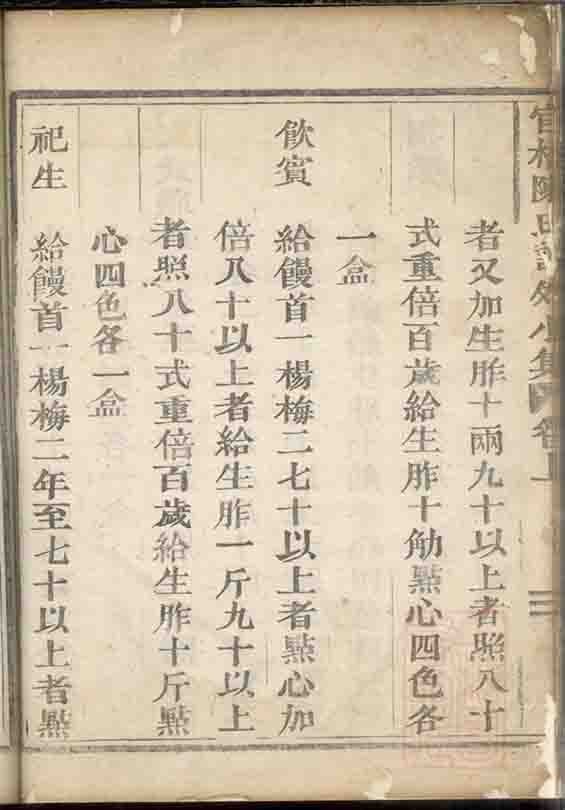 官林陳氏譜外小集 卷上
者又加生胙十兩九十以上者照八十
式重倍百歲給生胙十觔點心四色各
一盒
飲賓 給饅首一楊梅二七十以上者點心加
倍八十以上者給生胙一斤九十以上
者照八十式重倍百歲給生胙十斤點
心四色各一盒
祀生 給饅首一楊梅二年至七十以上者點